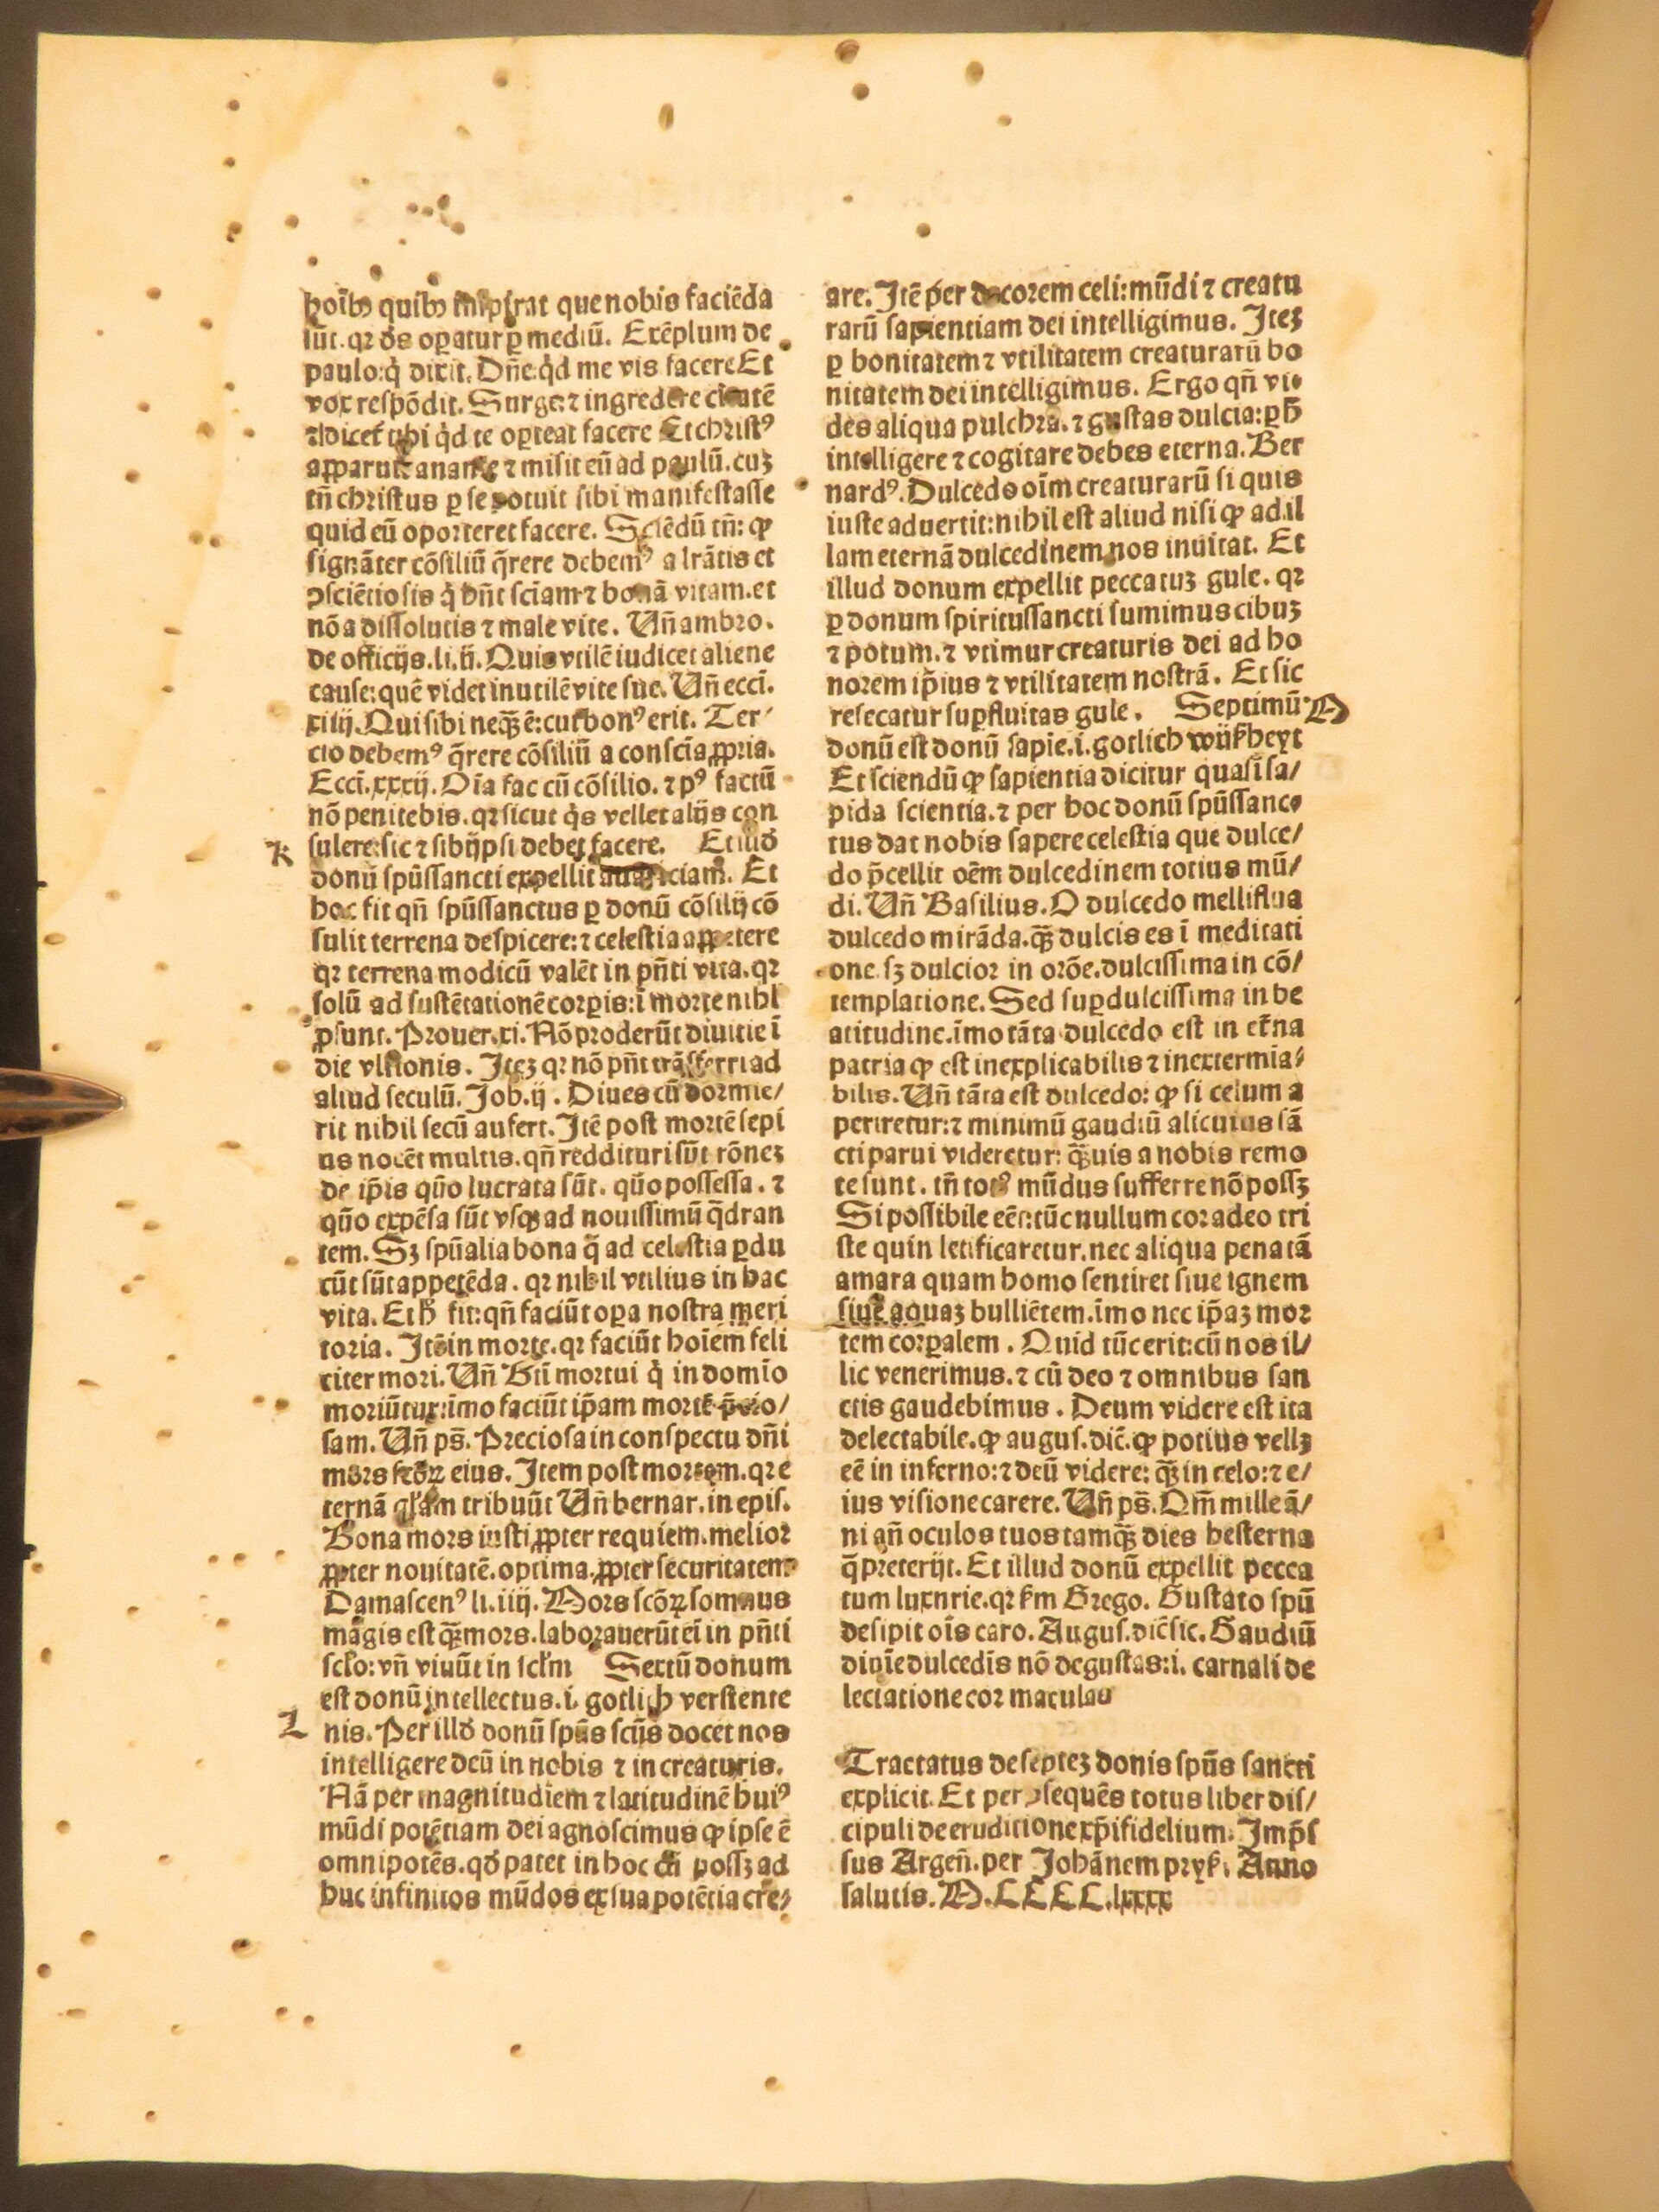 hoīb⁹ quib⁹ inspirat que nobis faciēda
sūt. qꝛ de᷒ oꝑatur ꝑ mediū. Exēplum de
paulo: q̇ dixit. Dn̄e q̇d me vis facere Et
vox respōdit. Surge: ⁊ ingredere ciuitatē
⁊ dicet tibi q̇d te oꝑteat facere Et christ⁹
apparuit ananie ⁊ misit eū ad paulū. cuꝫ
tn̄ christus ꝑ se potuit sibi manifestasse
quid eū oporteret facere. Sciēdū tn̄: ꝙ
signāter cōsiliū q̄rere debem⁹ a lrātis et
ꝯsciētiosis q̇ hn̄t sciam ⁊ bonā vitam. et
nō a dissolutis ⁊ male vite. Un̄ ambro.
de officijs. li. ij. Quis vtilē iudicet aliene
cause: quē videt inutilē vite sue. Un̄ ecci.
xiiij. Qui sibi neqꝫ ē: cui bon⁹ erit. Ter⸗
cio debem⁹ q̄rere cōsiliū a conscia ꝓpria.
Ecci. xxxij. Oīa fac cū cōsilio. ⁊ p⁹ factū
nō penitebis. qꝛ sicut q̇s vellet alijs con
sulere: sic ⁊ sibijpsi debet facere. Et illud
K
donū spūssancti expellit auariciam. Et
hoc fit qn̄ spūssanctus ꝑ donū cōsilij cō
sulit terrena despicere: ⁊ celestia appetere
qꝛ terrena modicū valēt in pn̄ti vita. qꝛ
solū ad sustētationē corꝑis: ī morte nihl
ꝓsunt. Prouer. xi. Nō proderūt diuitie ī
die vltionis. Iteꝫ qꝛ nō pn̄t trāsferri ad
aliud seculū. Job. ij. Diues cū dormie/
rit nihil secū aufert. Itē post mortē sepi
us nocēt multis. qn̄ reddituri sūt rōneꝫ
de ip̄is quō lucrata sūt. quō possessa. ⁊
quō expēsa sūt vsqꝫ ad nouissimū q̄dran
tem. Sꝫ spūalia bona q̄ ad celestia ꝑdu
cūt sūt appetēda. qꝛ nihil vtilius in hac
vita. Et h̄ fit: qn̄ faciūt oꝑa nostra meri
toria. Itē in morte. qꝛ faciūt hoīem feli
citer mori. Un̄ Bti mortui q̇ in domīo
moriūtur: īmo faciūt ip̄am mortē p̄cio/
sam. Un̄ ps̄. Preciosa in conspectu dn̄i
mors scōꝝ eius. Item post mortem. qꝛ e
ternā gl̄am tribuūt Un̄ bernar. in epis.
Bona mors iusti ꝓpter requiem. melior
ꝓpter nouitatē. optima. ꝓpter securitatem
Damascen⁹ li. iiij. Mors scōꝝ somnus
magis est qꝫ̄ mors. laborauerūt ei in pn̄ti
sclo: vn̄ viuūt in sclm Sextū donum
est donū intellectus. i. gotlich verstente
L
nis. Per illd̄ donū spūs sctūs docet nos
intelligere deū in nobis ⁊ in creaturis.
Nā per magnitudiem ⁊ latitudinē hui⁹
mūdi potētiam dei agnoscimus ꝙ ipse ē
omnipotēs. qd̄ patet in hoc cū possꝫ ad
huc infinitos mūdos ex sua potētia cre⸗
are. Itē per decorem celi: mūdi ⁊ creatu
rarū sapientiam dei intelligimus. Iteꝫ
ꝑ bonitatem ⁊ vtilitatem creaturarū bo
nitatem dei intelligimus. Ergo qn̄ vi⸗
des aliqua pulchra. ⁊ gustas dulcia: ꝑ h̄
intelligere ⁊ cogitare debes eterna. Ber
nard⁹. Dulcedo oīm creaturarū si quis
iuste aduertit: nihil est aliud nisi ꝙ ad il
lam eternā dulcedinem nos inuitat. Et
illud donum expellit peccatuꝫ gule. qꝛ
ꝑ donum spiritussancti sumimus cibuꝫ
⁊ potum. ⁊ vtimur creaturis dei ad ho
norem ip̄ius ⁊ vtilitatem nostrā. Et sic
resecatur suꝑfluitas gule. Septimū
M
donū est donū sapie. i. gotlich wijßheyt
Et sciendū ꝙ sapientia dicitur quasi sa/
pida scientia. ⁊ per hoc donū spūssanc⸗
tus dat nobis sapere celestia que dulce/
do p̄cellit oēm dulcedinem totius mū/
di. Un̄ Basilius. O dulcedo melliflua
dulcedo mirāda. qꝫ̄ dulcis es ī meditati
one sꝫ dulcior in orōe. dulcissima in cō/
templatione. Sed suꝑdulcissima in be
atitudine. īmo tāta dulcedo est in et̄na
patria ꝙ est inexplicabilis ⁊ inextermia⸗
bilis. Un̄ tāta est dulcedo: ꝙ si celum a
periretur: ⁊ minimū gaudiū alicuius sā
cti parui videretur: qꝫ̄uis a nobis remo
te sunt. tn̄ tot⁹ mūdus sufferre nō possꝫ
Si possibile eēt: tūc nullum cor adeo tri
ste quin letificaretur. nec aliqua pena tā
amara quam homo sentiret siue ignem
siue aquaꝫ bulliētem. īmo nec ip̄aꝫ mor
tem corꝑalem. Quid tūc erit: cū nos il/
lic venerimus. ⁊ cū deo ⁊ omnibus san
ctis gaudebimus. Deum videre est ita
delectabile. ꝙ augus. dic̄. ꝙ potius vellꝫ
eē in inferno: ⁊ deū videre: qꝫ̄ in celo: ⁊ e/
ius visione carere. Un̄ ps̄. Qm̄ mille ā/
ni an̄ oculos tuos tamqꝫ̄ dies hesterna
q̄ preterijt. Et illud donū expellit pecca
tum luxurie. qꝛ scdm Grego. Gustato spū
desipit oīs caro. Augus. dic̄ sic. Gaudiū
diuīe dulcedīs nō degustas: i. carnali de
lectatione cor maculas
Tractatus de septeꝫ donis spūs sancti
explicit. Et per ꝯsequēs totus liber dis/
cipuli de eruditione xp̄ifidelium. Imp̄s
sus Argen̄. per Johānem pryß. Anno
salutis. M.CCCC.lxxxx